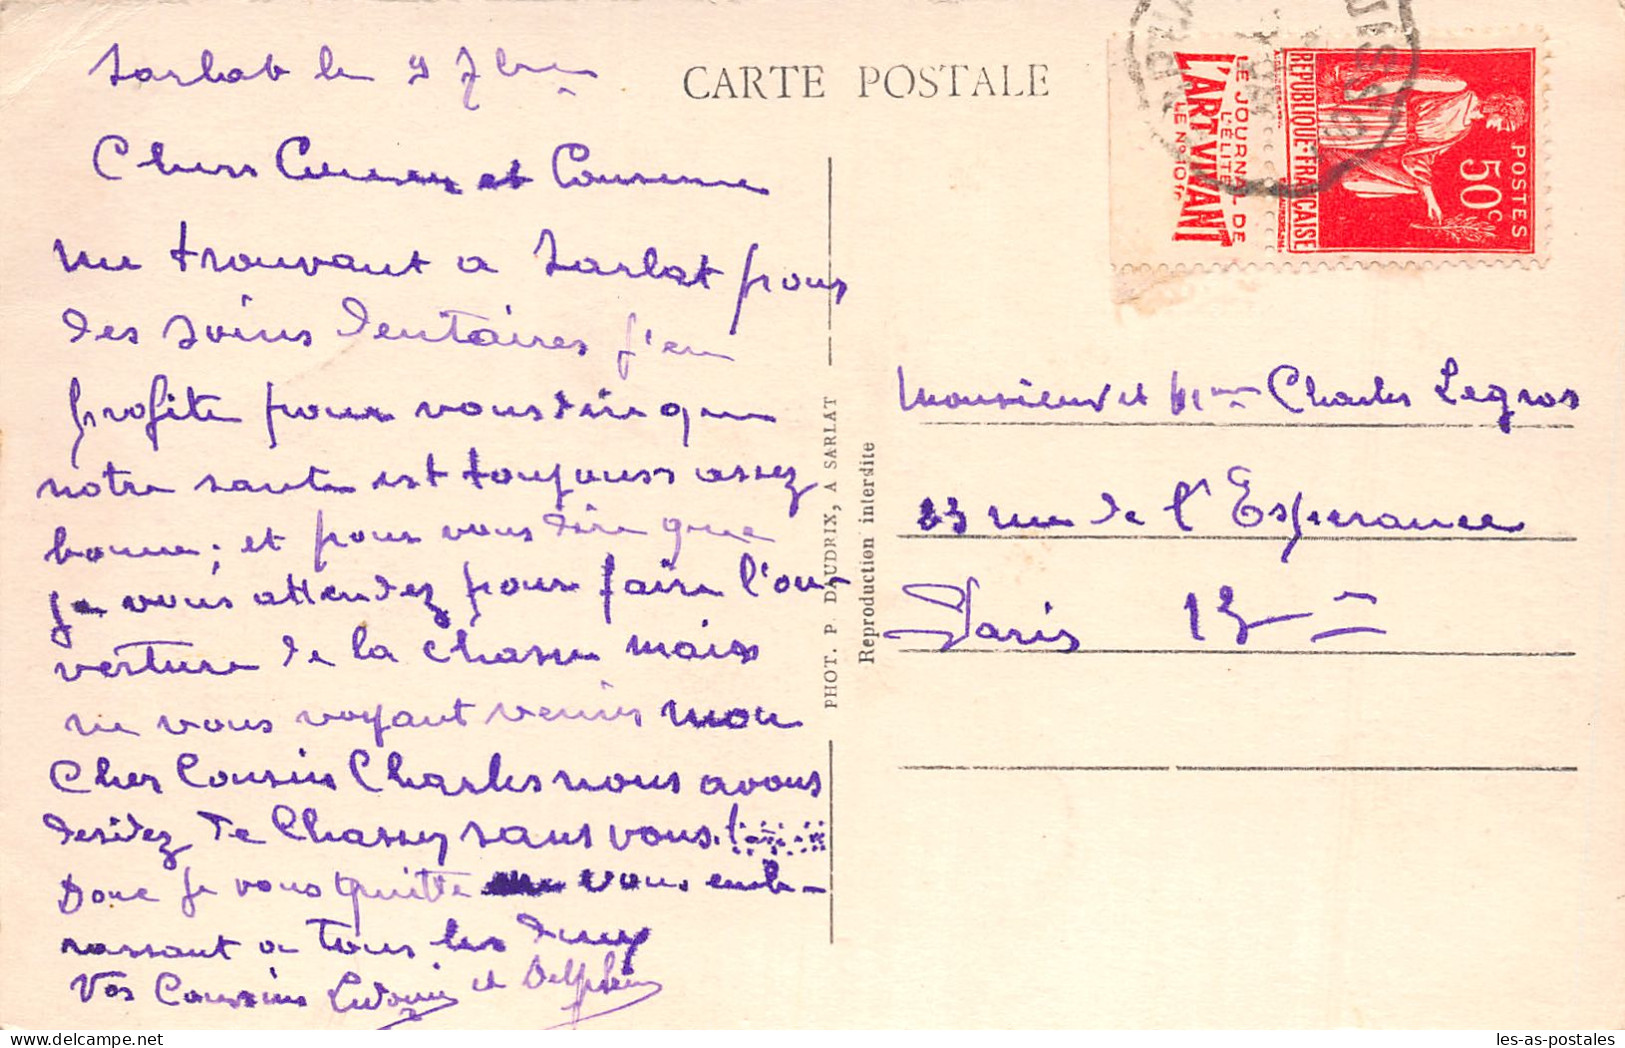 Sarlat le 9 7bre
CARTE POSTALE
Chers Cousin et Cousine
me trouvant a Sarlat pour
des soins dentaires j'en
profite pour vous dire que
notre sante est toujours assez
bonne; et pour vous dire que
je vous attendez pour faire l'ou-
verture de la chasse mais
ne vous voyant venir mon
Cher Cousin Charles nous avons
desidez de Chasser sans vous!
Donc je vous quitte vous emb-
rassant a tous les deux
Vos Cousins et
PHOT. P. DAUDRIX, A SARLAT
Reproduction interdite
LE JOURNAL DE
L'ÉLITE
L'ART VIVANT
LE No 10fr
REPUBLIQUE FRANÇAISE
50c
POSTES
Monsieur et Mme Charles Legros
23 rue de l'Esperance
Paris 13e
les-as-postales